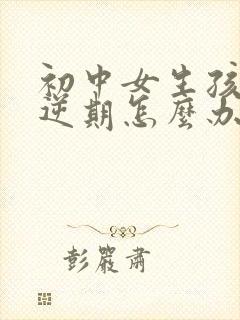 初中女生孩
逆期怎麼办
彭嚴肅